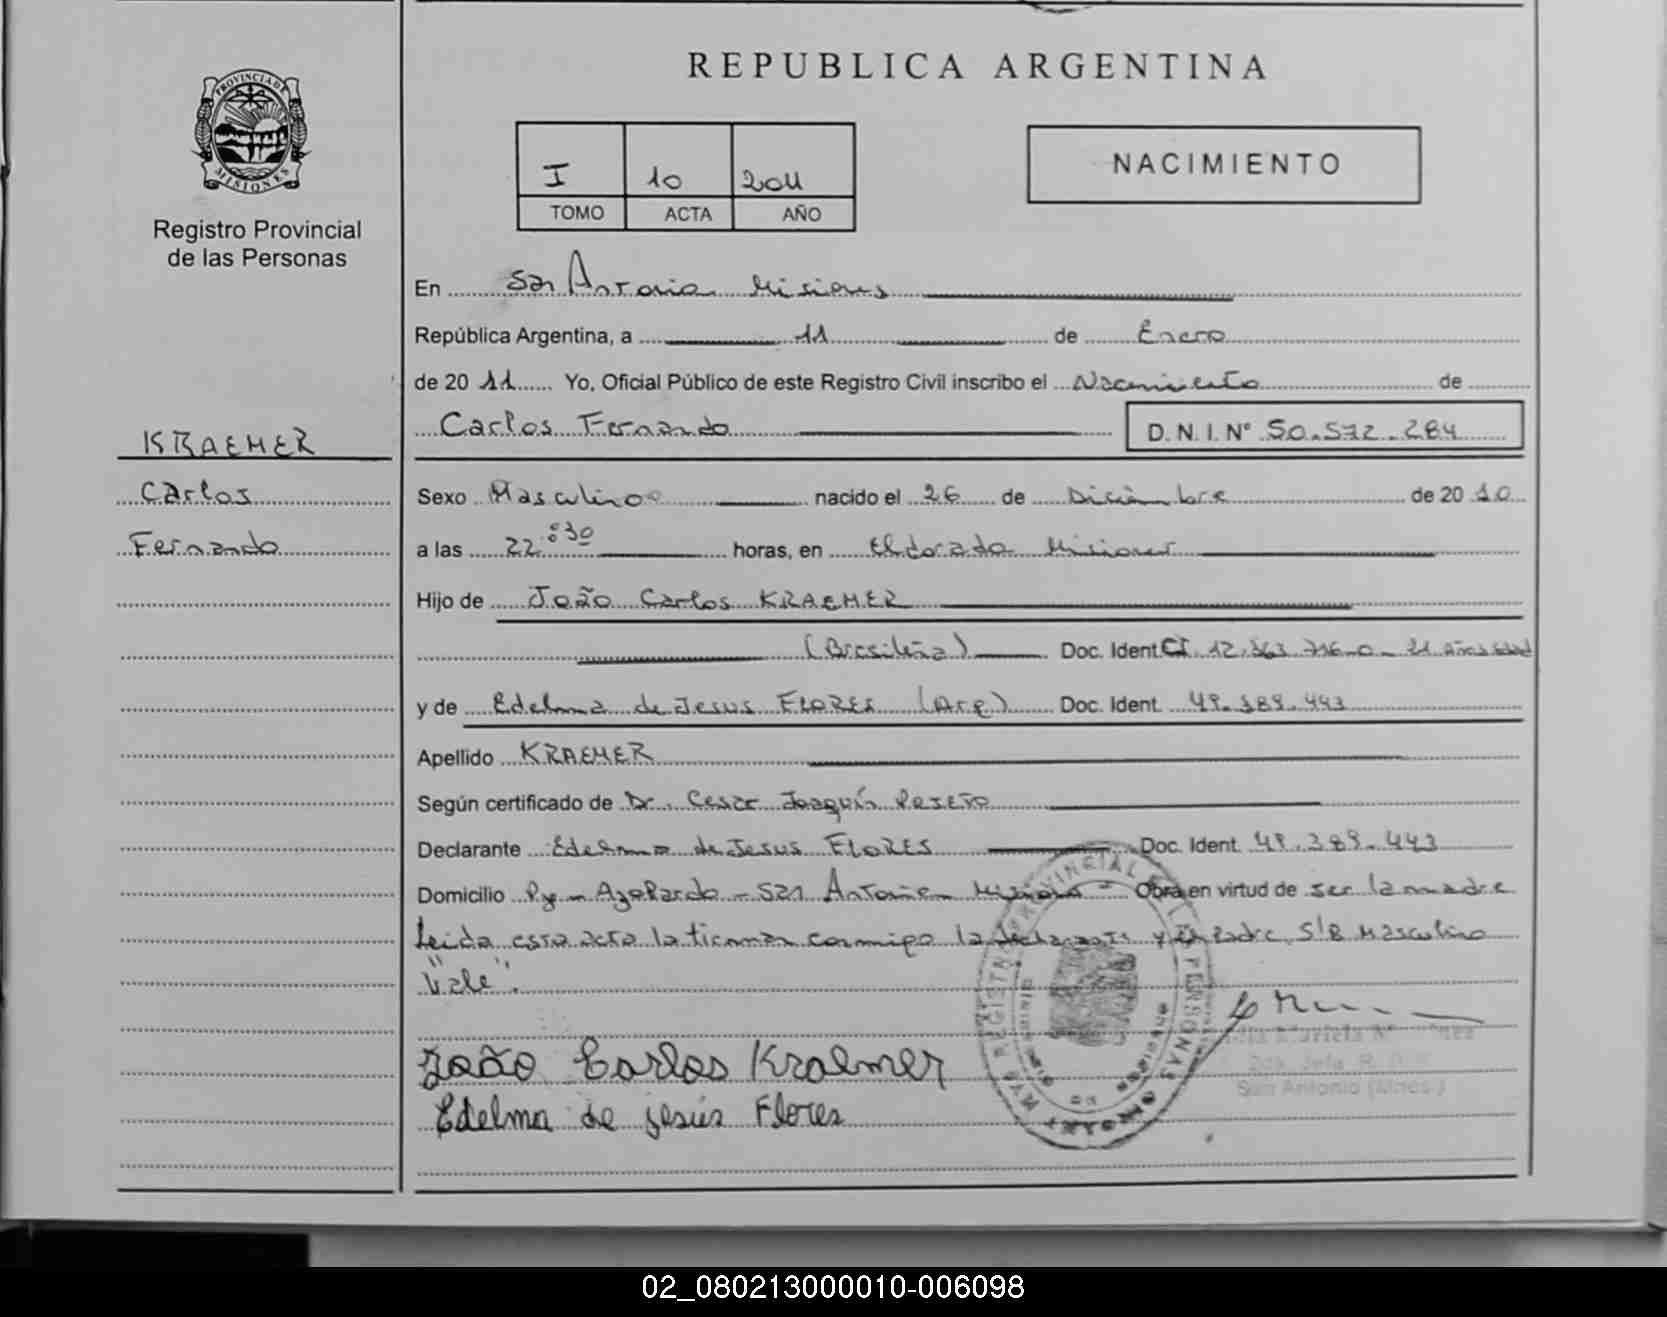 REPUBLICA ARGENTINA
PROVINCIA DE
MISIONES
Registro Provincial
de las Personas
I 10 2011
TOMO ACTA AÑO
NACIMIENTO
En San Antonio Misiones
República Argentina, a 11 de Enero
de 20 11 Yo, Oficial Público de este Registro Civil inscribo el Nacimiento de
Carlos Fernando D.N.I.Nº 50.572.284
KRAEMER
Carlos
Fernando
Sexo Masculino nacido el 26 de Diciembre de 20 10
a las 22:30 horas, en Eldorado Misiones
Hijo de João Carlos KRAEMER
(Brasileña) Doc. Ident CI. 12.363.716-0 - 21 años edad
y de Edelma de Jesus FLORES (Arg) Doc. Ident. 49.389.443
Apellido KRAEMER
Según certificado de Dr. Cesar Joaquín
Declarante Edelma de Jesus FLORES Doc. Ident. 49.389.443
Domicilio Azopardo - San Antonio Misiones - Obra en virtud de ser la madre
Leida esta acta la firman conmigo la declarante y el Padre S/R Masculino
"Vale".
João Carlos Kraemer
Edelma de jesús Flores
2da. Jefa. R.
San Antonio (Mnes)
REGISTRO PROVINCIAL DE LAS PERSONAS
02_080213000010-006098